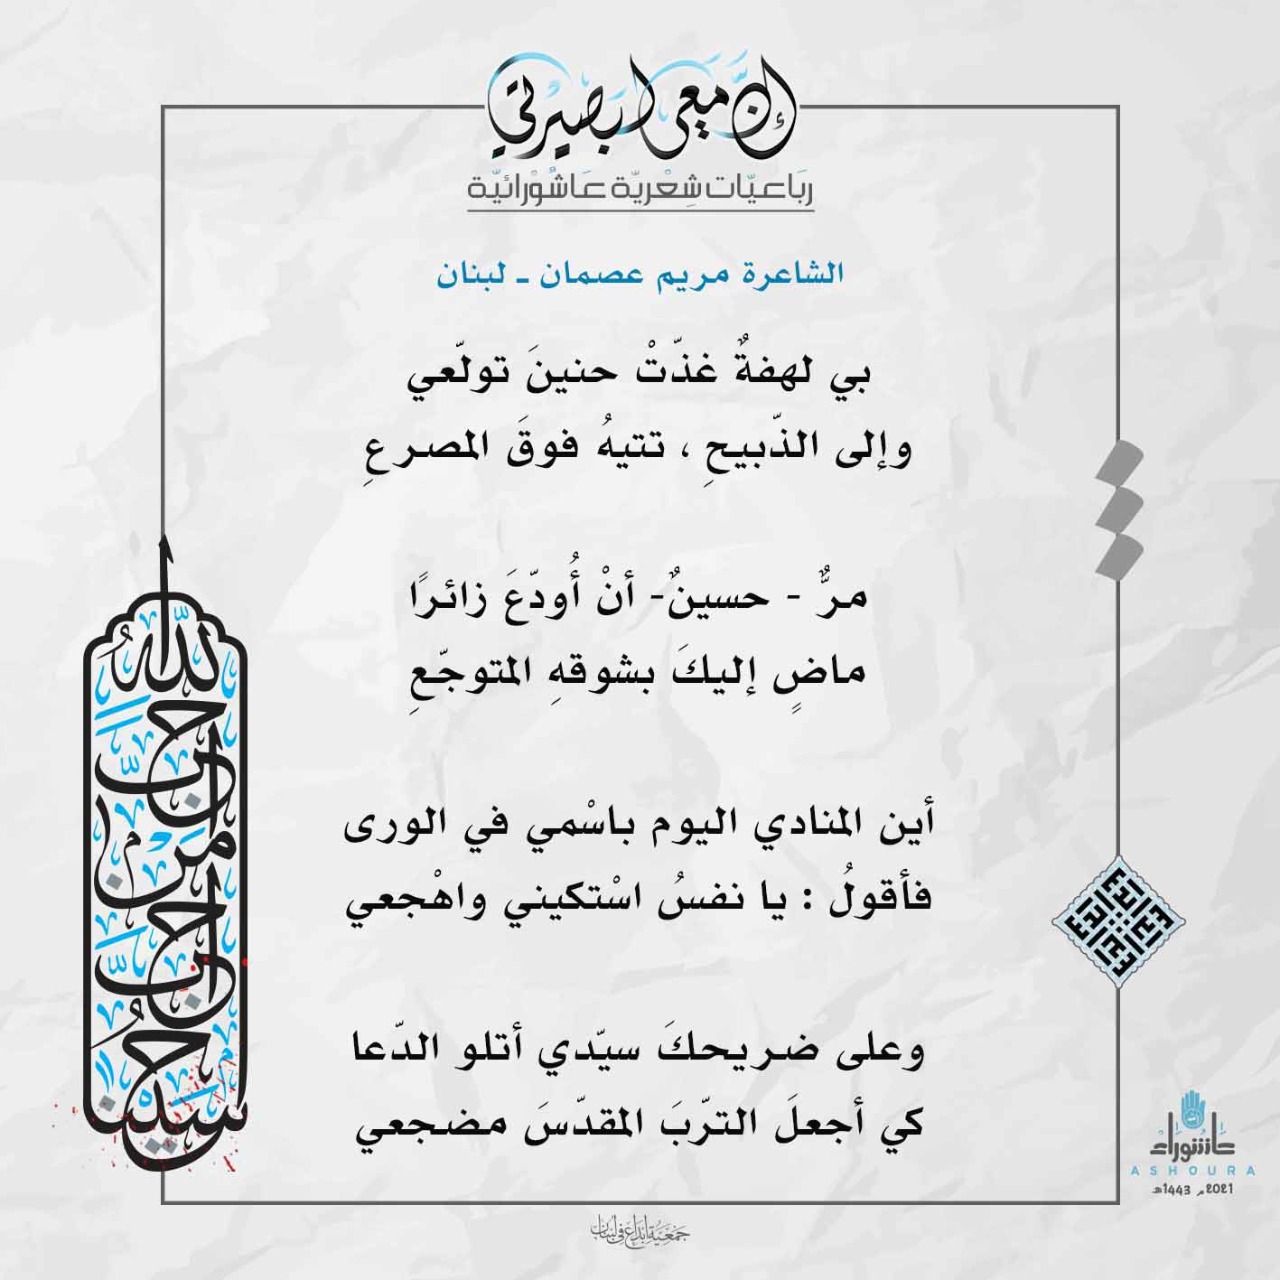 إنّ معي لبصيرتي
رباعيّات شِعْريّة عَاشُوْرائيّة
الشاعرة مريم عصمان ـ لبنان
بي لهفةٌ غذّتْ حنينَ تولّعي
وإلى الذّبيحِ ، تتيهُ فوقَ المصرعِ
مرٌّ - حسينٌ- أنْ أُودّعَ زائرًا
ماضٍ إليكَ بشوقهِ المتوجّعِ
أين المنادي اليوم باسْمي في الورى
فأقولُ : يا نفسُ اسْتكيني واهْجعي
وعلى ضريحكَ سيّدي أتلو الدّعا
كي أجعلَ التّربَ المقدّسَ مضجعي
أحبَّ اللهُ من أحبَّ حُسَيْنًا
عاشوراء
ASHOURA
2021م 1443هـ
جمعيّة إبداع في لبنان